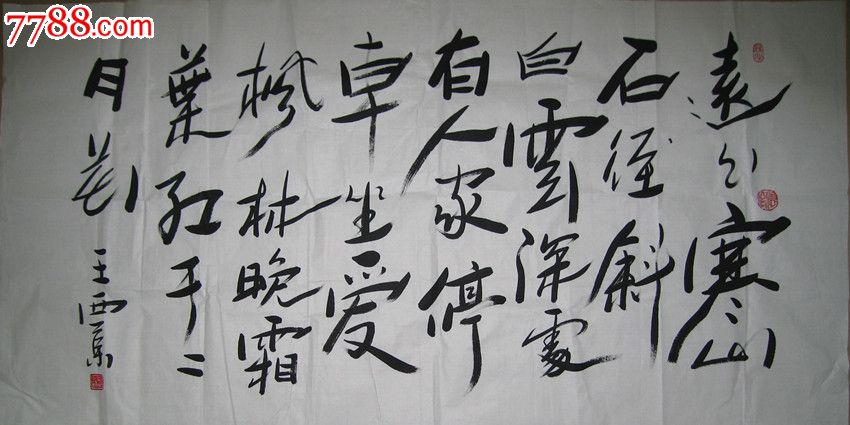 7788.com
遠上寒山
石径斜
白雲深處
有人家停
車坐爱
枫林晚霜
葉红于二
月花
王西